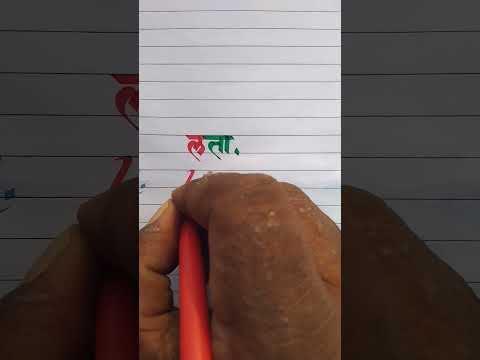 लता.